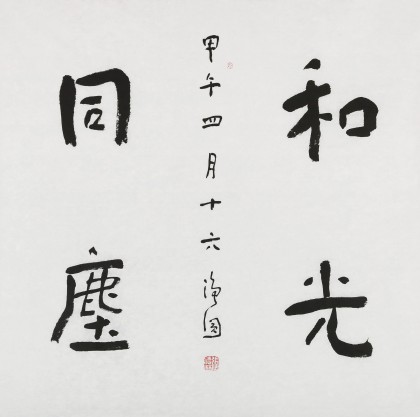 和光
同塵
甲午四月十六